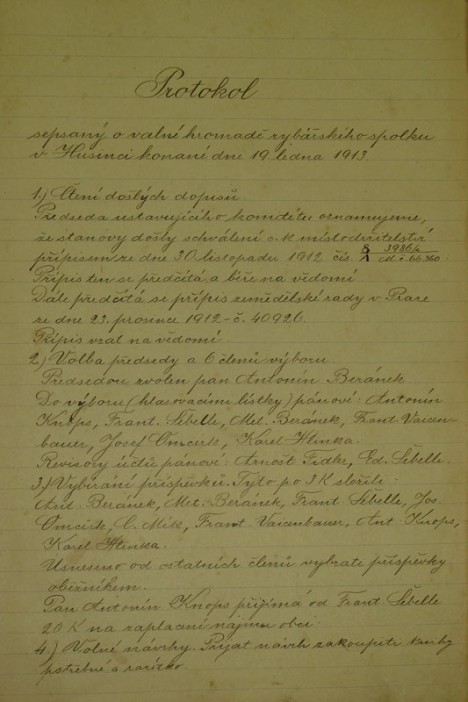 Protokol
sepsaný o valné hromadě rybářského spolku
v Husinci konané dne 19. ledna 1913.
1.) Čtení došlých dopisů.
Předseda ustavujícího komitétu oznamujeme,
že stanovy došly schválení c. k. místodržitelství
přípisem ze dne 30. listopadu 1912 čís.
Přípis ten se předčítá a béře na vědomí.
Dále předčítá se přípis zemědělské rady v Praze
ze dne 23. prosince 1912 – č. 40926.
Přípis vzat na vědomí.
2.) Volba předsedy a 6 členů výboru
Předsedou zvolen pan Antonín Beránek
Do výboru (hlasovacími lístky) pánové: Antonín
Knops, Frant. Šebelle, Met. Beránek, Frant. Vaicen-
bauer, Josef, Karel Hlinka.
Revisory účtů pánové: Arnošt Fidke, Ed. Šebelle.
3.) Vybírání příspěvků. Tyto po 3 K složili:
Ant. Beránek, Met. Beránek, Frant. Šebelle, Jos.
Frant. Vaicenbauer, Ant. Knops,
Karel Hlinka.
Usneseno od ostatních členů vybrati příspěvky
oběžníkem.
Pan Antonín Knops přijímá od Frant. Šebelle
20 K na zaplacení nájmu obci.
4.) Volné návrhy. Přijat návrh zakoupiti knihy
potřebné a razítko.